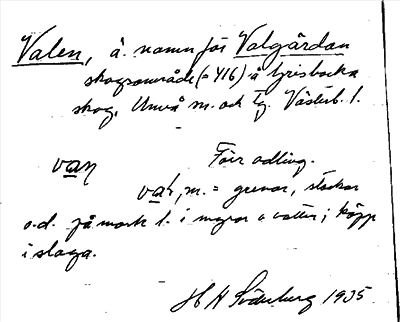 Valen, å. namn för Valgårdan
skogsområde (= 416) å Grisbacka
skog, Umeå sn. och tg. Västerb. l.
van Före odling.
val, m. = grenar, stockar
o.d. på mark l. i myrar o vatten; käpp
i slaga.
H Söderberg 1935